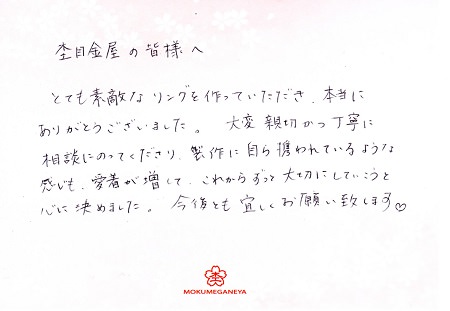 杢目金屋の皆様へ
とても素敵なリングを作っていただき、本当に
ありがとうございました。 大変親切かつ丁寧に
相談にのってくださり、製作に自ら携われているような
感じも、愛着が増して、これからずっと大切にしていこうと
心に決めました。 今後とも宜しくお願い致します♡
杢
MOKUMEGANEYA